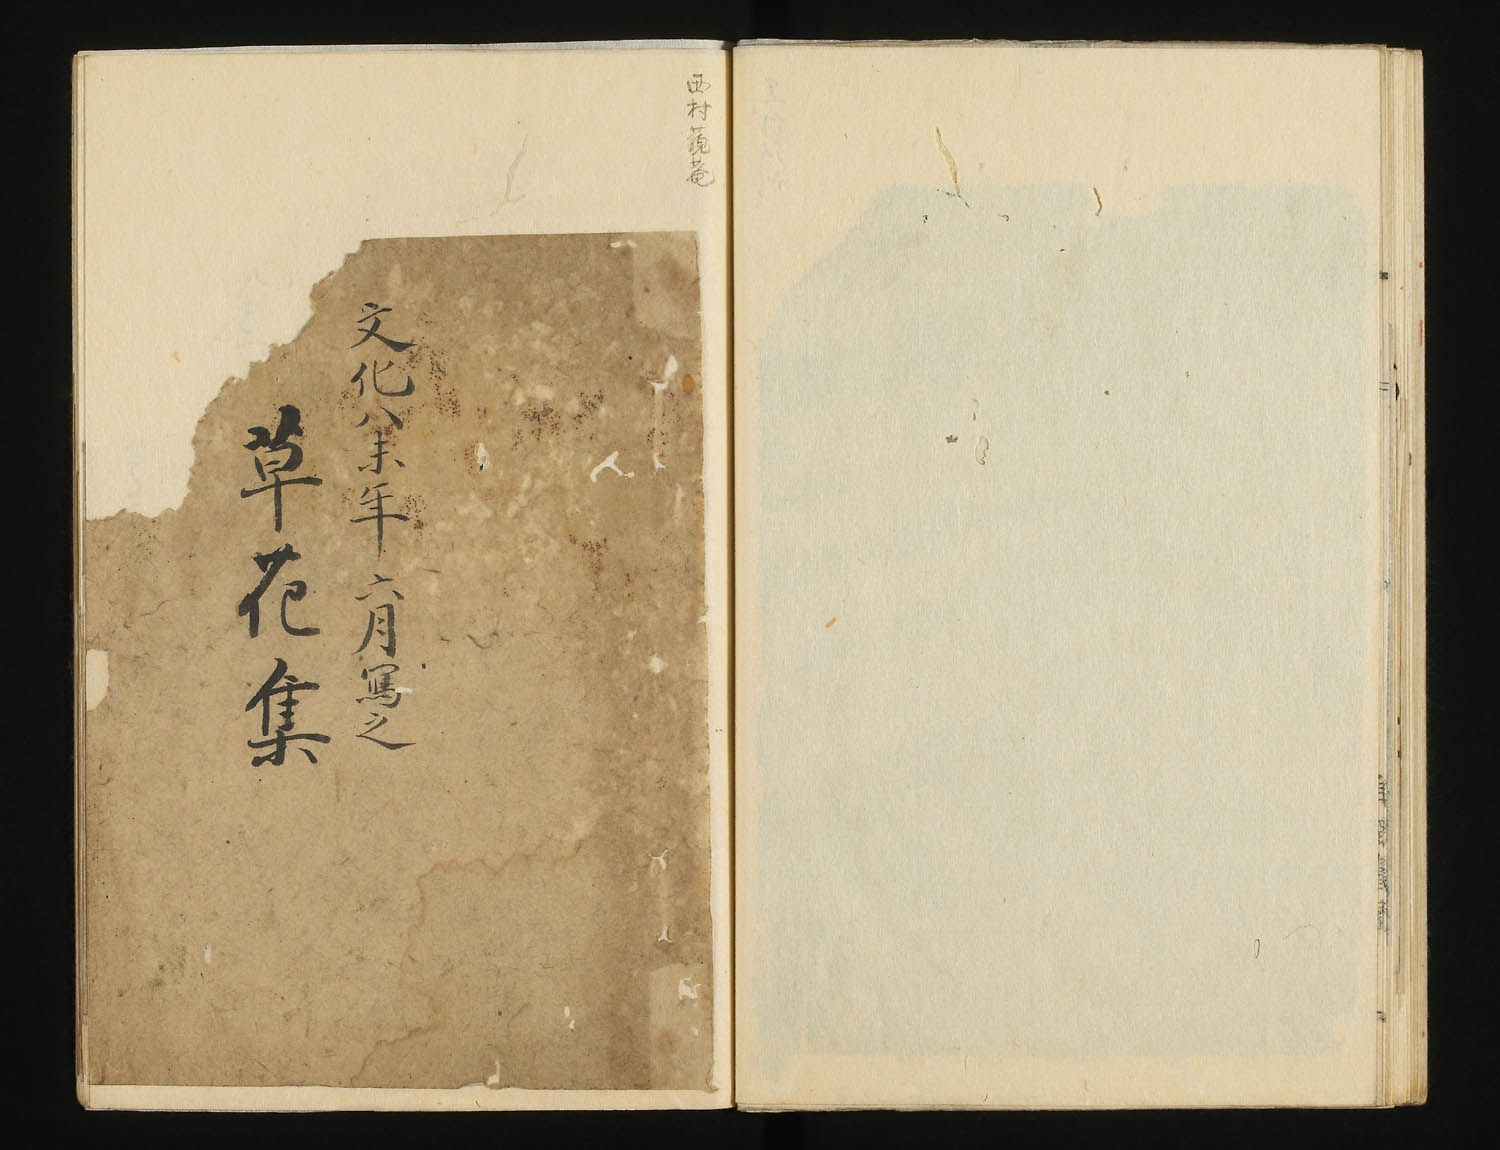 西村藐菴
文化八未年六月寫之
草花集